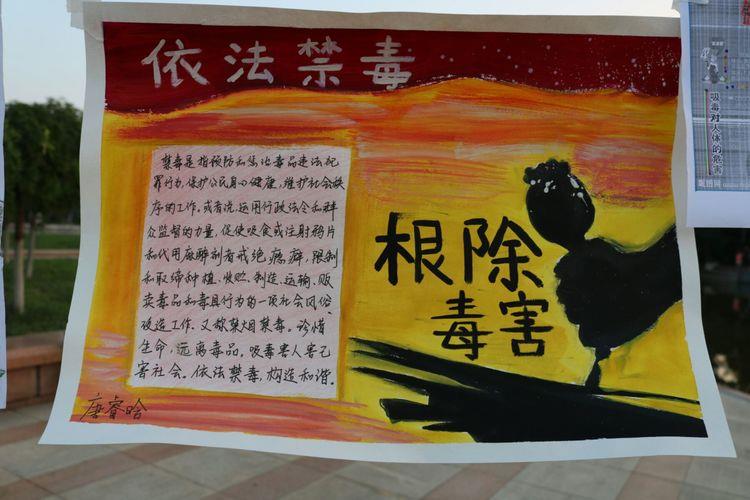 依法禁毒
禁毒是指预防和惩治毒品违法犯
罪行为,保护公民身心健康,维护社会秩
序的工作。或者说,运用行政法令和群
众监督的力量,促使吸食或注射鸦片
和代用麻醉剂者戒绝瘾癖,限制
和取缔种植、收贮、制造、运输、贩
卖毒品和毒具行为的一项社会风俗
改造工作,又称禁烟禁毒。珍惜
生命,远离毒品,吸毒害人害己
害社会。依法禁毒,构造和谐。
根除
毒害
唐睿晗
吸毒对人体的危害